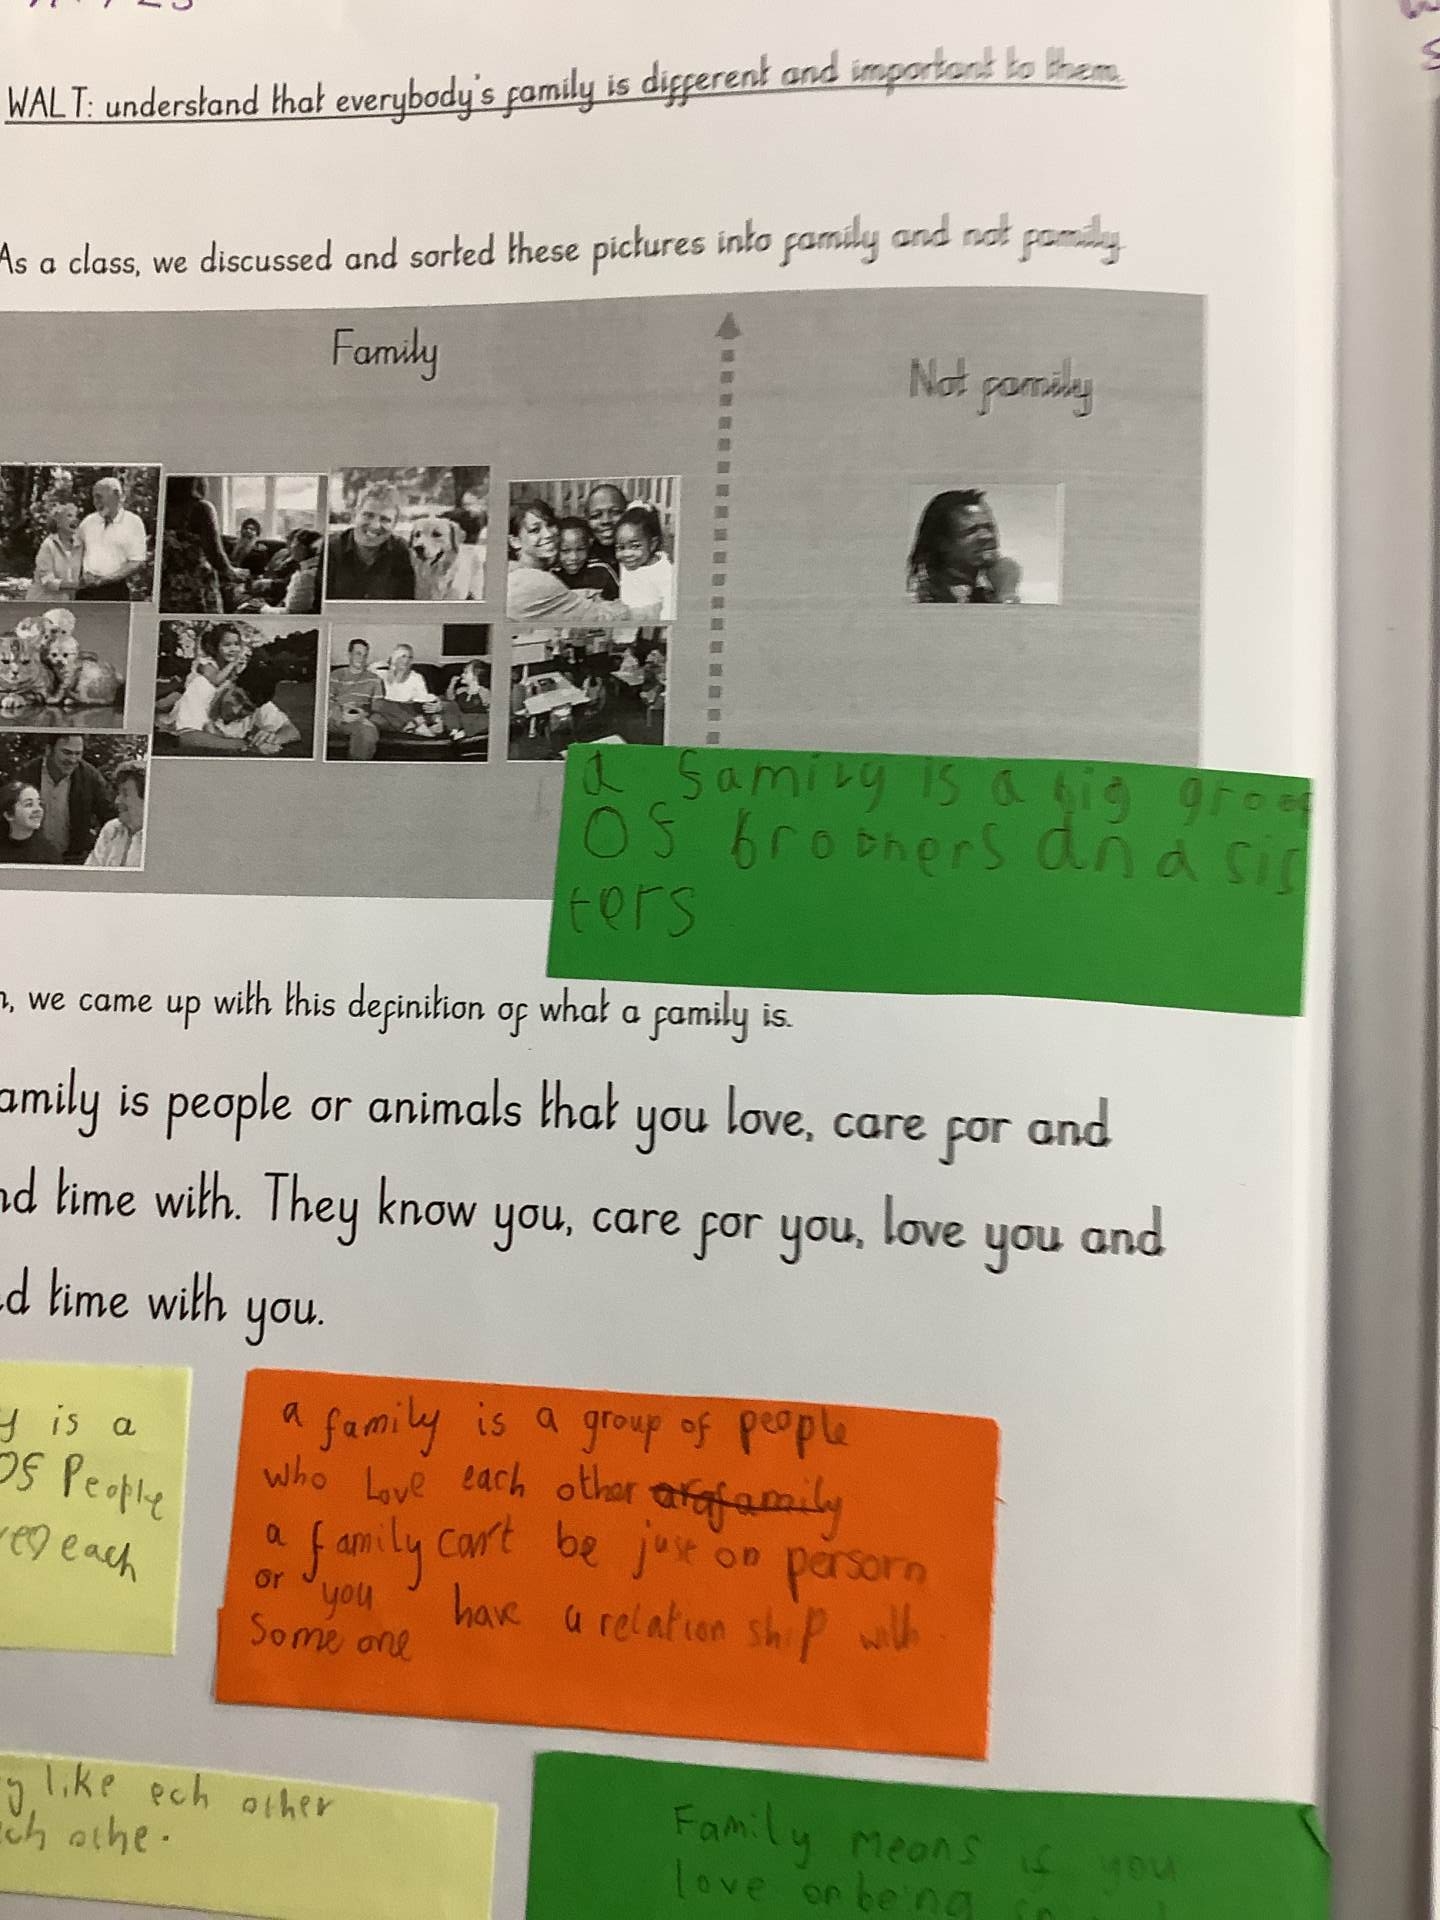 WALT: understand that everybody's family is different and important to them.
As a class, we discussed and sorted these pictures into family and not family.
Family
Not family
a family is a big groo
of brothers and a sis
ters
, we came up with this definition of what a family is.
amily is people or animals that you love, care for and
nd time with. They know you, care for you, love you and
d time with you.
y is a
of People
each
a family is a group of people
who Love each other
a family can't be just on persorn
or you have a relation ship with
Some one
y like ech other
ch othe.
Family means if you
love or being